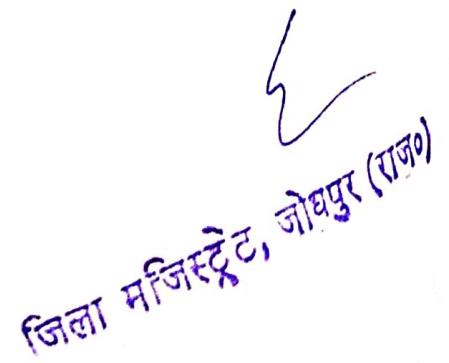 जिला मजिस्ट्रेट, जोधपुर (राज०)